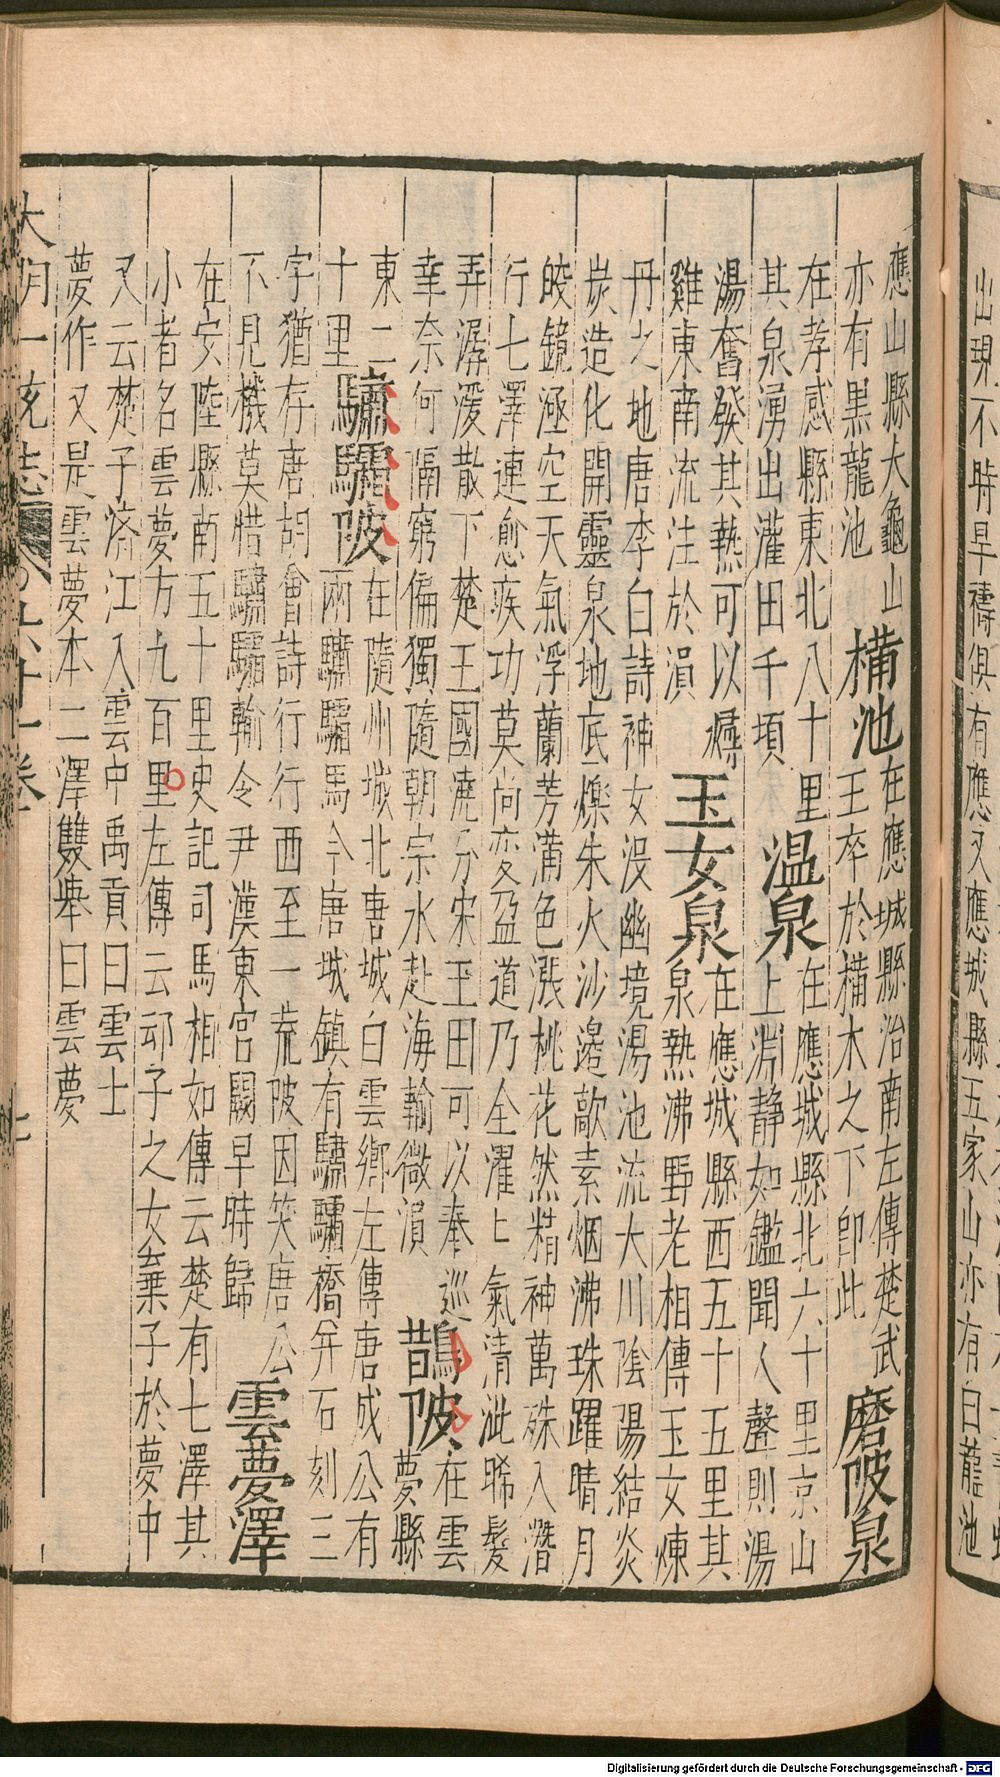 出現不時旱禱俱有應又應城縣五家山亦有白龍池
應山縣大龜山
亦有黑龍池
樠池
在應城縣治南左傳楚武
王卒於樠木之下卽此
磨陂泉
在孝感縣東北八十里
其泉湧出灌田千頃
温泉
在應城縣北六十里京山
上淵静如鑑聞人聲則湯
湯奮發其熱可以燖
雞東南流注於溳
玉女泉
在應城縣西五十五里其
泉熱沸野老相傳玉女煉
丹之地唐李白詩神女没幽境湯池流大川陰陽結炎
炭造化開靈泉地底爍朱火沙邊歊素烟沸珠躍晴月
皎鏡涵空天氣浮蘭芳滿色漲桃花然精神萬殊入潛
行七澤連愈疾功莫尚变盈道乃全濯氣清泚晞髮
弄潺湲散下楚王國澆分宋玉田可以奉巡
幸奈何隔窮偏獨隨朝宗水赴海輸微涓
鵲陂
在雲
夢縣
東二
十里
驌驦陂
在隨州城北唐城白雲鄉左傳唐成公有
兩驌驦馬今唐城鎮有驌驦橋并石刻三
字猶存唐胡曾詩行行西至一荒陂因笑唐公
不見機莫惜驌驦輸令尹漢東宮闕早時歸
雲夢澤
在安陸縣南五十里史記司馬相如傳云楚有七澤其
小者名雲夢方九百里左傳云䢵子之女棄子於夢中
又云楚子濟江入雲中禹貢曰雲土
夢作乂是雲夢本二澤雙舉曰雲夢
大明一統志
六十一卷
七
Digitalisierung gefördert durch die Deutsche Forschungsgemeinschaft - DFG